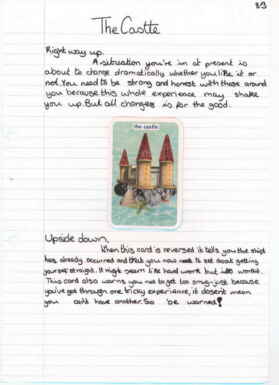 89
The Castle
Right way up.
A situation you're in at present is
about to change dramatically whether you like it or
not. You need to be strong and honest with those around
you because this whole experience may shake
you up. But all changes is for the good.
the castle
Upside down.
When this card is reversed it tells you the shift
has already occurred and that you now need to set about getting
yourself straight. It might seem like hard work but worth it.
This card also warns you not to get too smug-just because
you've got through one tricky experience, it doesn't mean
you can't have another. So be warned!